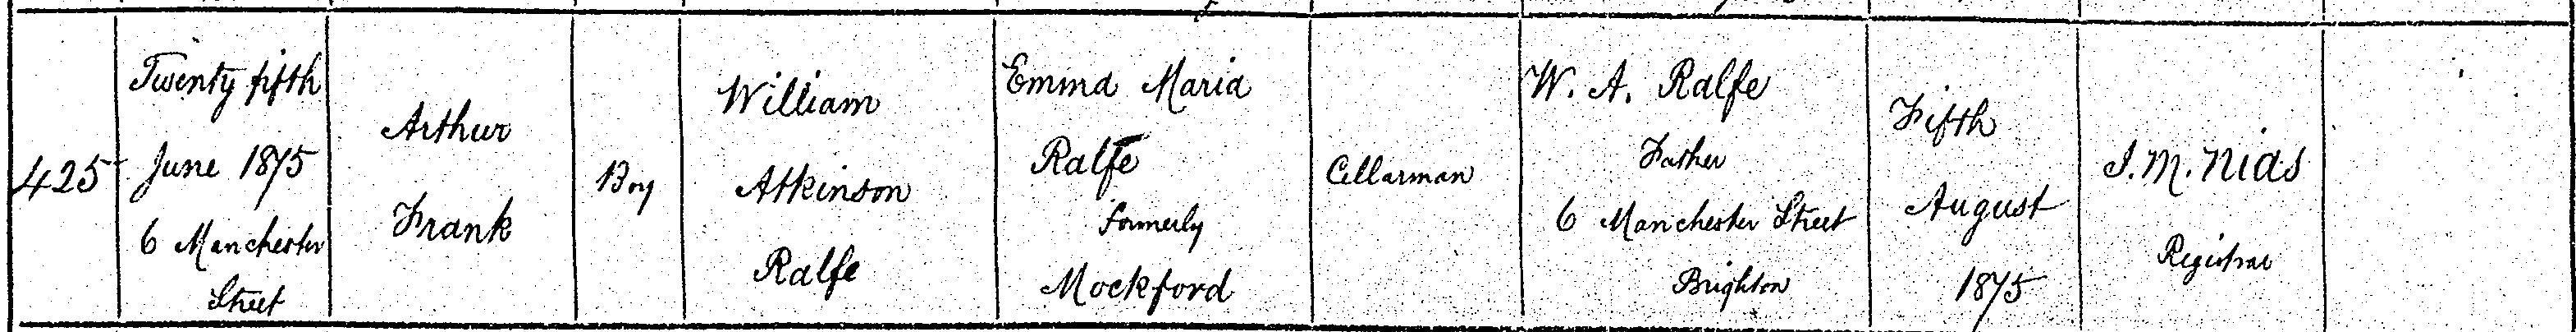 425
Twenty fifth
June 1875
6 Manchester
Street
Arthur
Frank
Boy
William
Atkinson
Ralfe
Emma Maria
Ralfe
formerly
Mockford
Cellarman
W. A. Ralfe
Father
6 Manchester Street
Brighton
Fifth
August
1875
J. M. Nias
Registrar